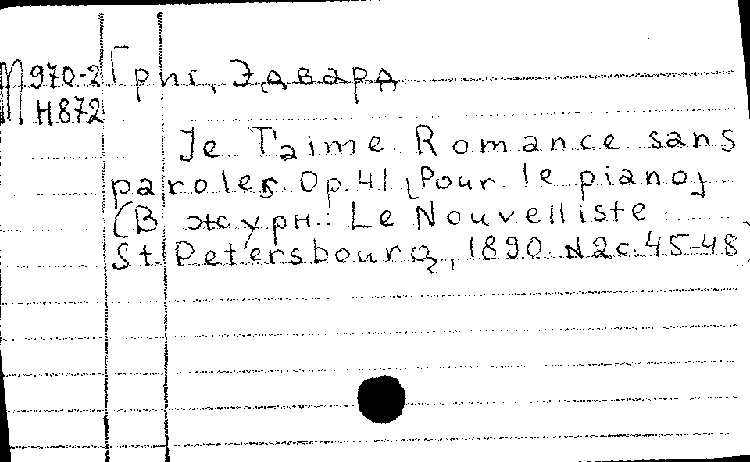 М970-2 Григ, Эдвард
Н872
Je T'aime. Romance sans
paroles. Op. 41 [Pour le piano]
(В журн.: Le Nouvelliste
St. Petersbourg, 1890. N2 с. 45-48)